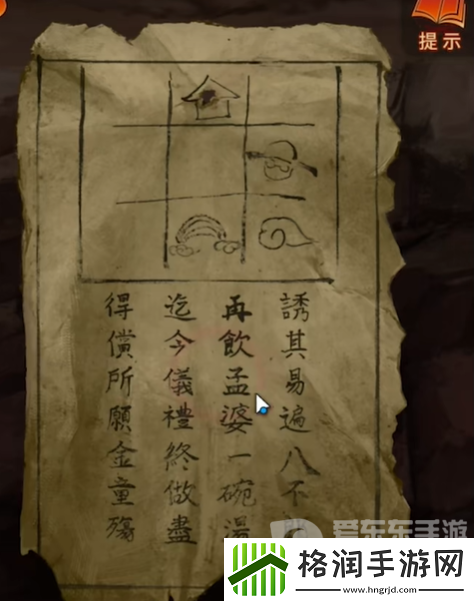 提示
誘其易遍八不
再飲孟婆一碗湯
迄今儀禮終做盡
得償所願金童殤
爱东东手游
格润手游网
www.hngrjd.com